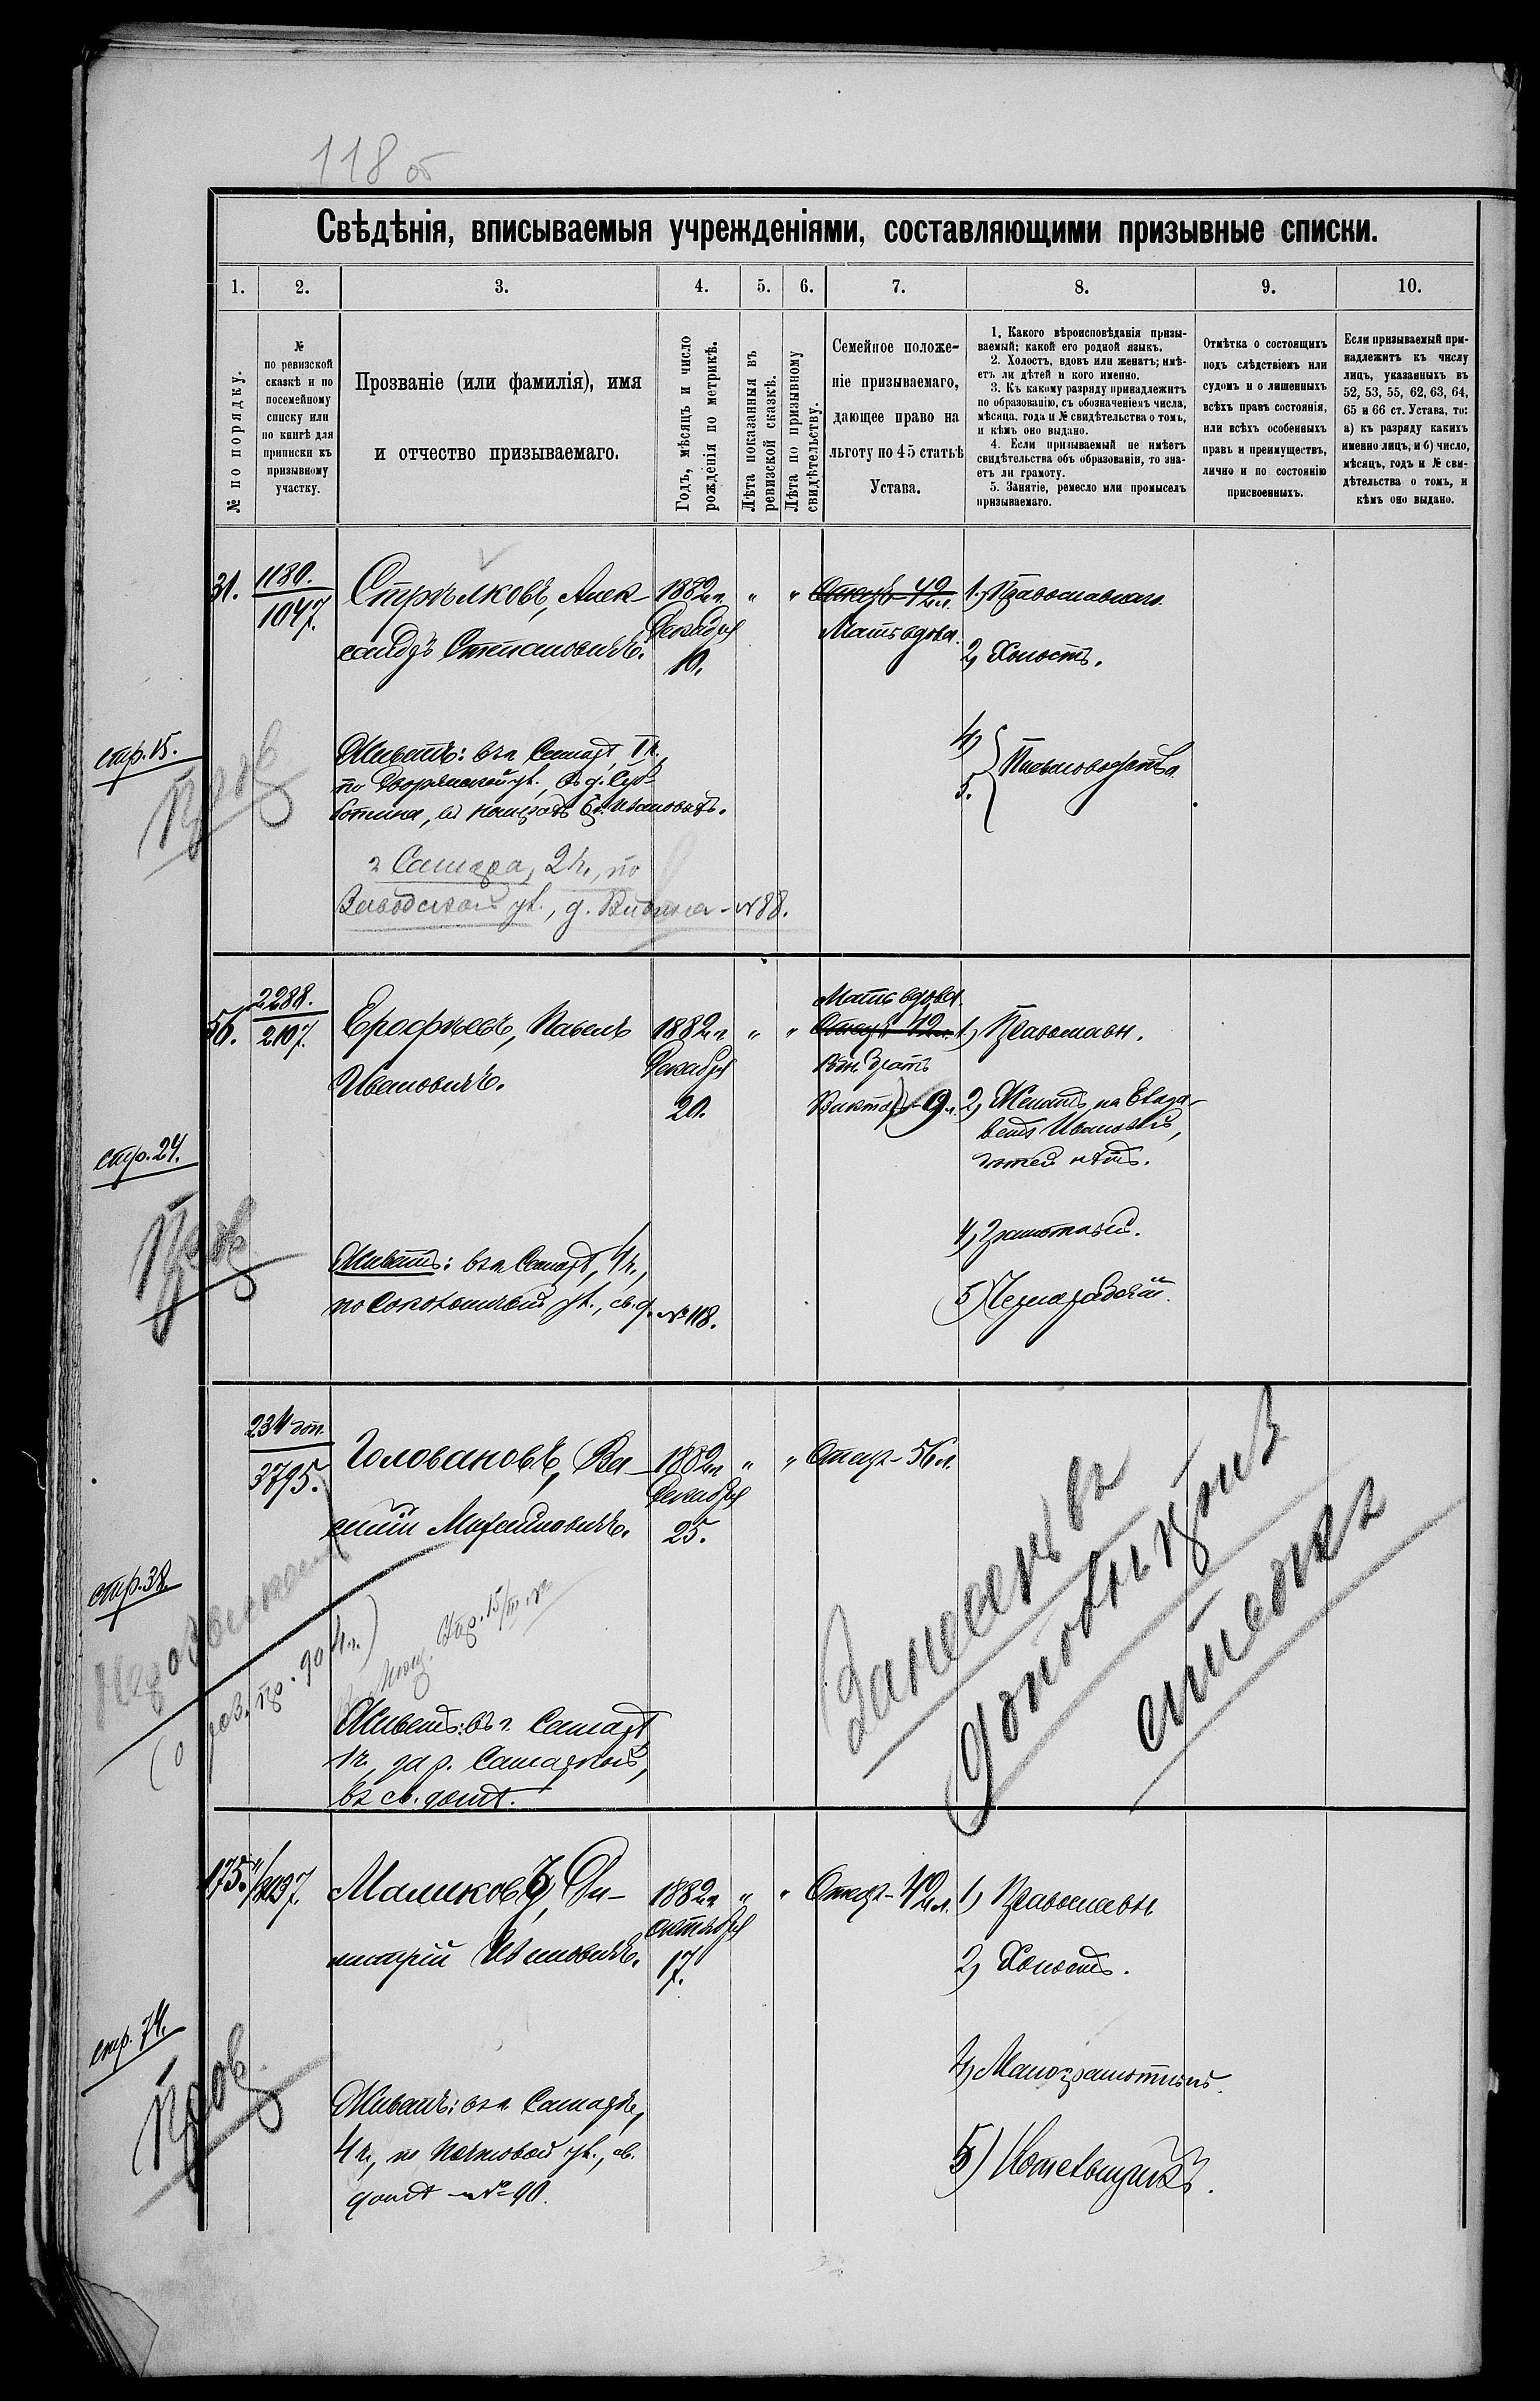 118 об
Свѣдѣнія, вписываемыя учрежденіями, составляющими призывные списки.
1. 2. 3. 4. 5. 6. 7. 8. 9. 10.
№ по порядку.
№
по ревизской
сказкѣ и по
посемейному
списку или
по книгѣ для
приписки къ
призывному
участку.
Прозваніе (или фамилія), имя
и отчество призываемаго.
Годъ, мѣсяцъ и число
рожденія по метрикѣ.
Лѣта показанныя въ
ревизской сказкѣ.
Лѣта по призывному
свидѣтельству.
Семейное положе-
ніе призываемаго,
дающее право на
льготу по 45 статьѣ
Устава.
1. Какого вѣроисповѣданія призы-
ваемый; какой его родной языкъ.
2. Холостъ, вдовъ или женатъ; имѣ-
етъ ли дѣтей и кого именно.
3. Къ какому разряду принадлежитъ
по образованію, съ обозначеніемъ числа,
мѣсяца, года и № свидѣтельства о томъ,
и кѣмъ оно выдано.
4. Если призываемый не имѣетъ
свидѣтельства объ образованіи, то зна-
етъ ли грамоту.
5. Занятіе, ремесло или промыселъ
призываемаго.
Отмѣтка о состоящихъ
подъ слѣдствіемъ или
судомъ и о лишенныхъ
всѣхъ правъ состоянія,
или всѣхъ особенныхъ
правъ и преимуществъ,
лично и по состоянію
присвоенныхъ.
Если призываемый при-
надлежитъ къ числу
лицъ, указанныхъ въ
52, 53, 55, 62, 63, 64,
65 и 66 ст. Устава, то:
а) къ разряду какихъ
именно лицъ, и б) число,
мѣсяцъ, годъ и № сви-
дѣтельства о томъ, и
кѣмъ оно выдано.
31.
1180.
1047.
Стрѣлковъ, Алек-
сандръ Степановичъ.
1882 г.
Декабря
10.
" "
Отецъ - 42 л.
Мать вдова.
1.) Православнаго
2) Холостъ.
4)
5.
Письмоводство
стр. 15.
Пров
Живетъ: въ г. Самарѣ, 1 ч.,
по Дворянской ул., въ д. Суб-
ботина, въ
г Самара, 2 ч., по
Заводской ул., д. - № 88.
56.
2288.
2107.
Ерофѣевъ, Павелъ
Ивановичъ.
1882 г.
Декабря
20.
" "
Мать вдова.
Отецъ 42 л.
Братъ
Викторъ - 9 л.
1) Православн.
2) Женатъ, на Елиза-
ветѣ Ивановой,
дѣтей нѣтъ.
4) Грамотный.
5) Чернорабочій.
стр. 24.
Пров
Живетъ: въ г. Самарѣ, 4 ч.,
по Сокольничьей ул., св. д. № 118.
234 доп.
3795.
Головановъ, Ва-
силій Максимовичъ.
1882 г.
Декабря
25.
" "
Отецъ - 56 л.
Занесенъ въ
дополнит. приз
списокъ
стр. 38
Живетъ: въ г. Самарѣ
1 ч., за р. Самаркой,
въ св. домѣ.
175.
"/2137.
Маликовъ, Ди-
митрій Ивановичъ.
1882 г.
октября
17.
" "
Отецъ - 42 л.
1) Православн
2) Холостъ.
4) Малограмотный.
5)
стр. 74.
Пров
Живетъ: въ г. Самарѣ,
4 ч., по Почтовой ул., св.
домѣ - № 90.